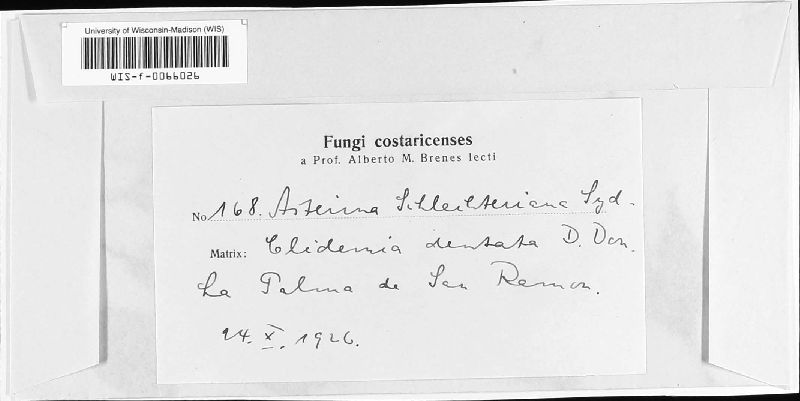 University of Wisconsin-Madison (WIS)
WIS-f-0066026
Fungi costaricenses
a Prof. Alberto M. Brenes lecti
No 168. Asterina Schlechteriana Syd.
Matrix: Clidemia dentata D. Don.
La Palma de San Ramon.
24. X. 1926.